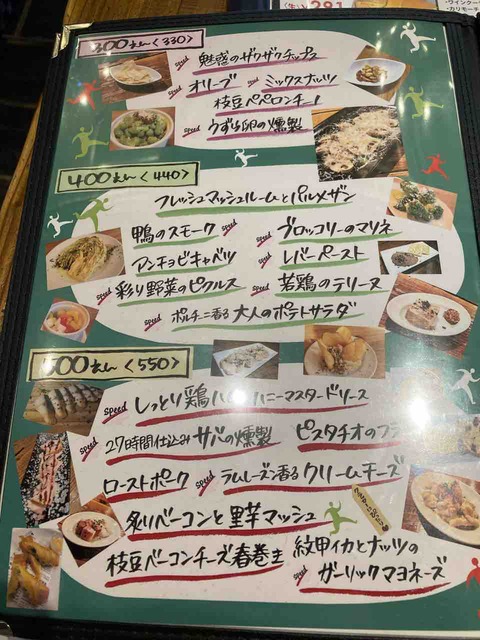 300えん〈330〉
魅惑のザクザクチップス
speed オリーブ speed ミックスナッツ
枝豆ペペロンチーノ
speed うずら卵の燻製
400えん〈440〉
フレッシュマッシュルームとパルメザン
鴨のスモーク speed
speed ブロッコリーのマリネ
アンチョビキャベツ
speed レバーペースト
speed 彩り野菜のピクルス
speed 若鶏のテリーヌ
speed ポルチーニ香る 大人のポテトサラダ
500えん〈550〉
speed しっとり鶏ハム ハニーマスタードソース
speed 27時間仕込みサバの燻製
ピスタチオのフラ
ローストポーク
speed ラムレーズン香るクリームチーズ
炙りベーコンと里芋マッシュ
枝豆ベーコンチーズ春巻き
speed 紋甲イカとナッツの
ガーリックマヨネーズ